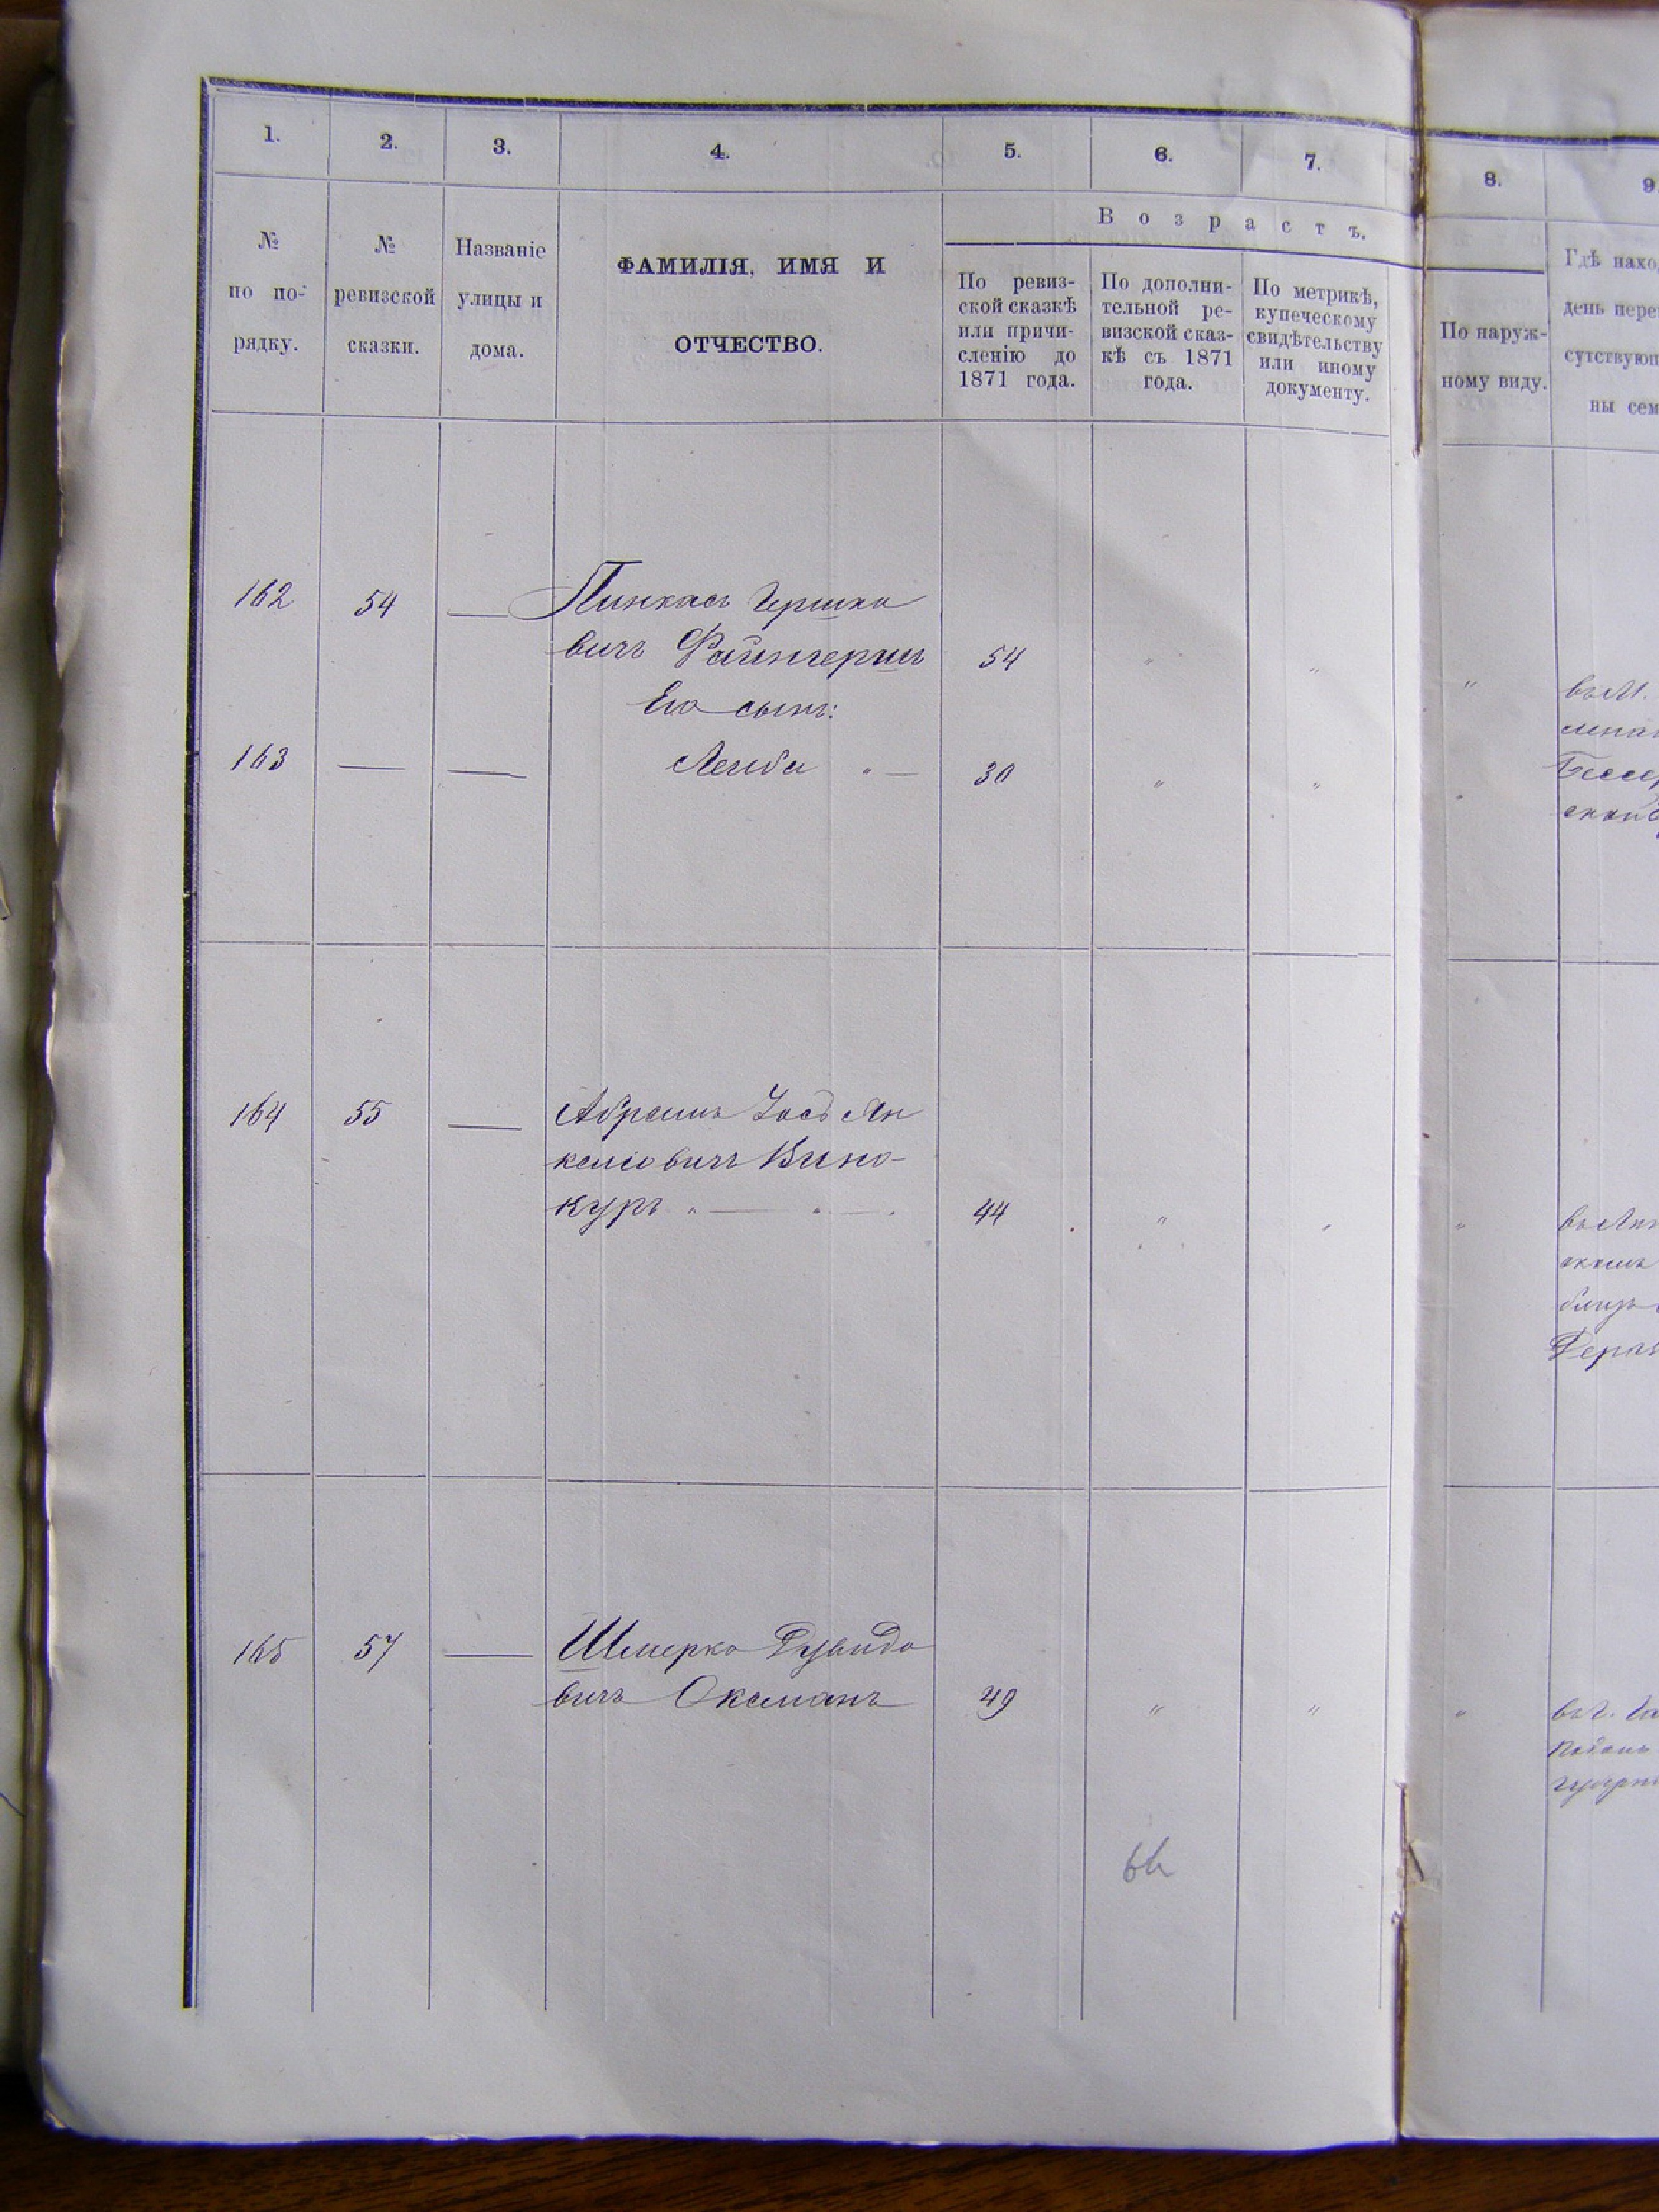 1. 2. 3. 4. 5. 6. 7. 8. 9.
№ по по-
рядку.
№
ревизской
сказки.
Названіе
улицы и
дома.
ФАМИЛІЯ, ИМЯ И
ОТЧЕСТВО.
Возрастъ.
По ревиз-
ской сказкѣ
или причи-
сленію до
1871 года.
По дополни-
тельной ре-
визской сказ-
кѣ съ 1871
года.
По метрикѣ,
купеческому
свидѣтельству
или иному
документу.
По наруж-
ному виду.
Гдѣ нахо
день пере
сутствующ
ны сем
162 54 — Пинкасъ Гершко
вичъ Файнгершъ 54 " " "
Его сынъ:
163 — — Лейба " — 30 " " "
въ М.
Бессер
164 55 — Абрамъ Іосъ Ян
келіовичъ Вино-
куръ " — " — . 44 " " "
близъ
165 57 — Шмерко Дувидо
вичъ Оксманъ 49 " " "
въ г. Га
Подоль
губерні